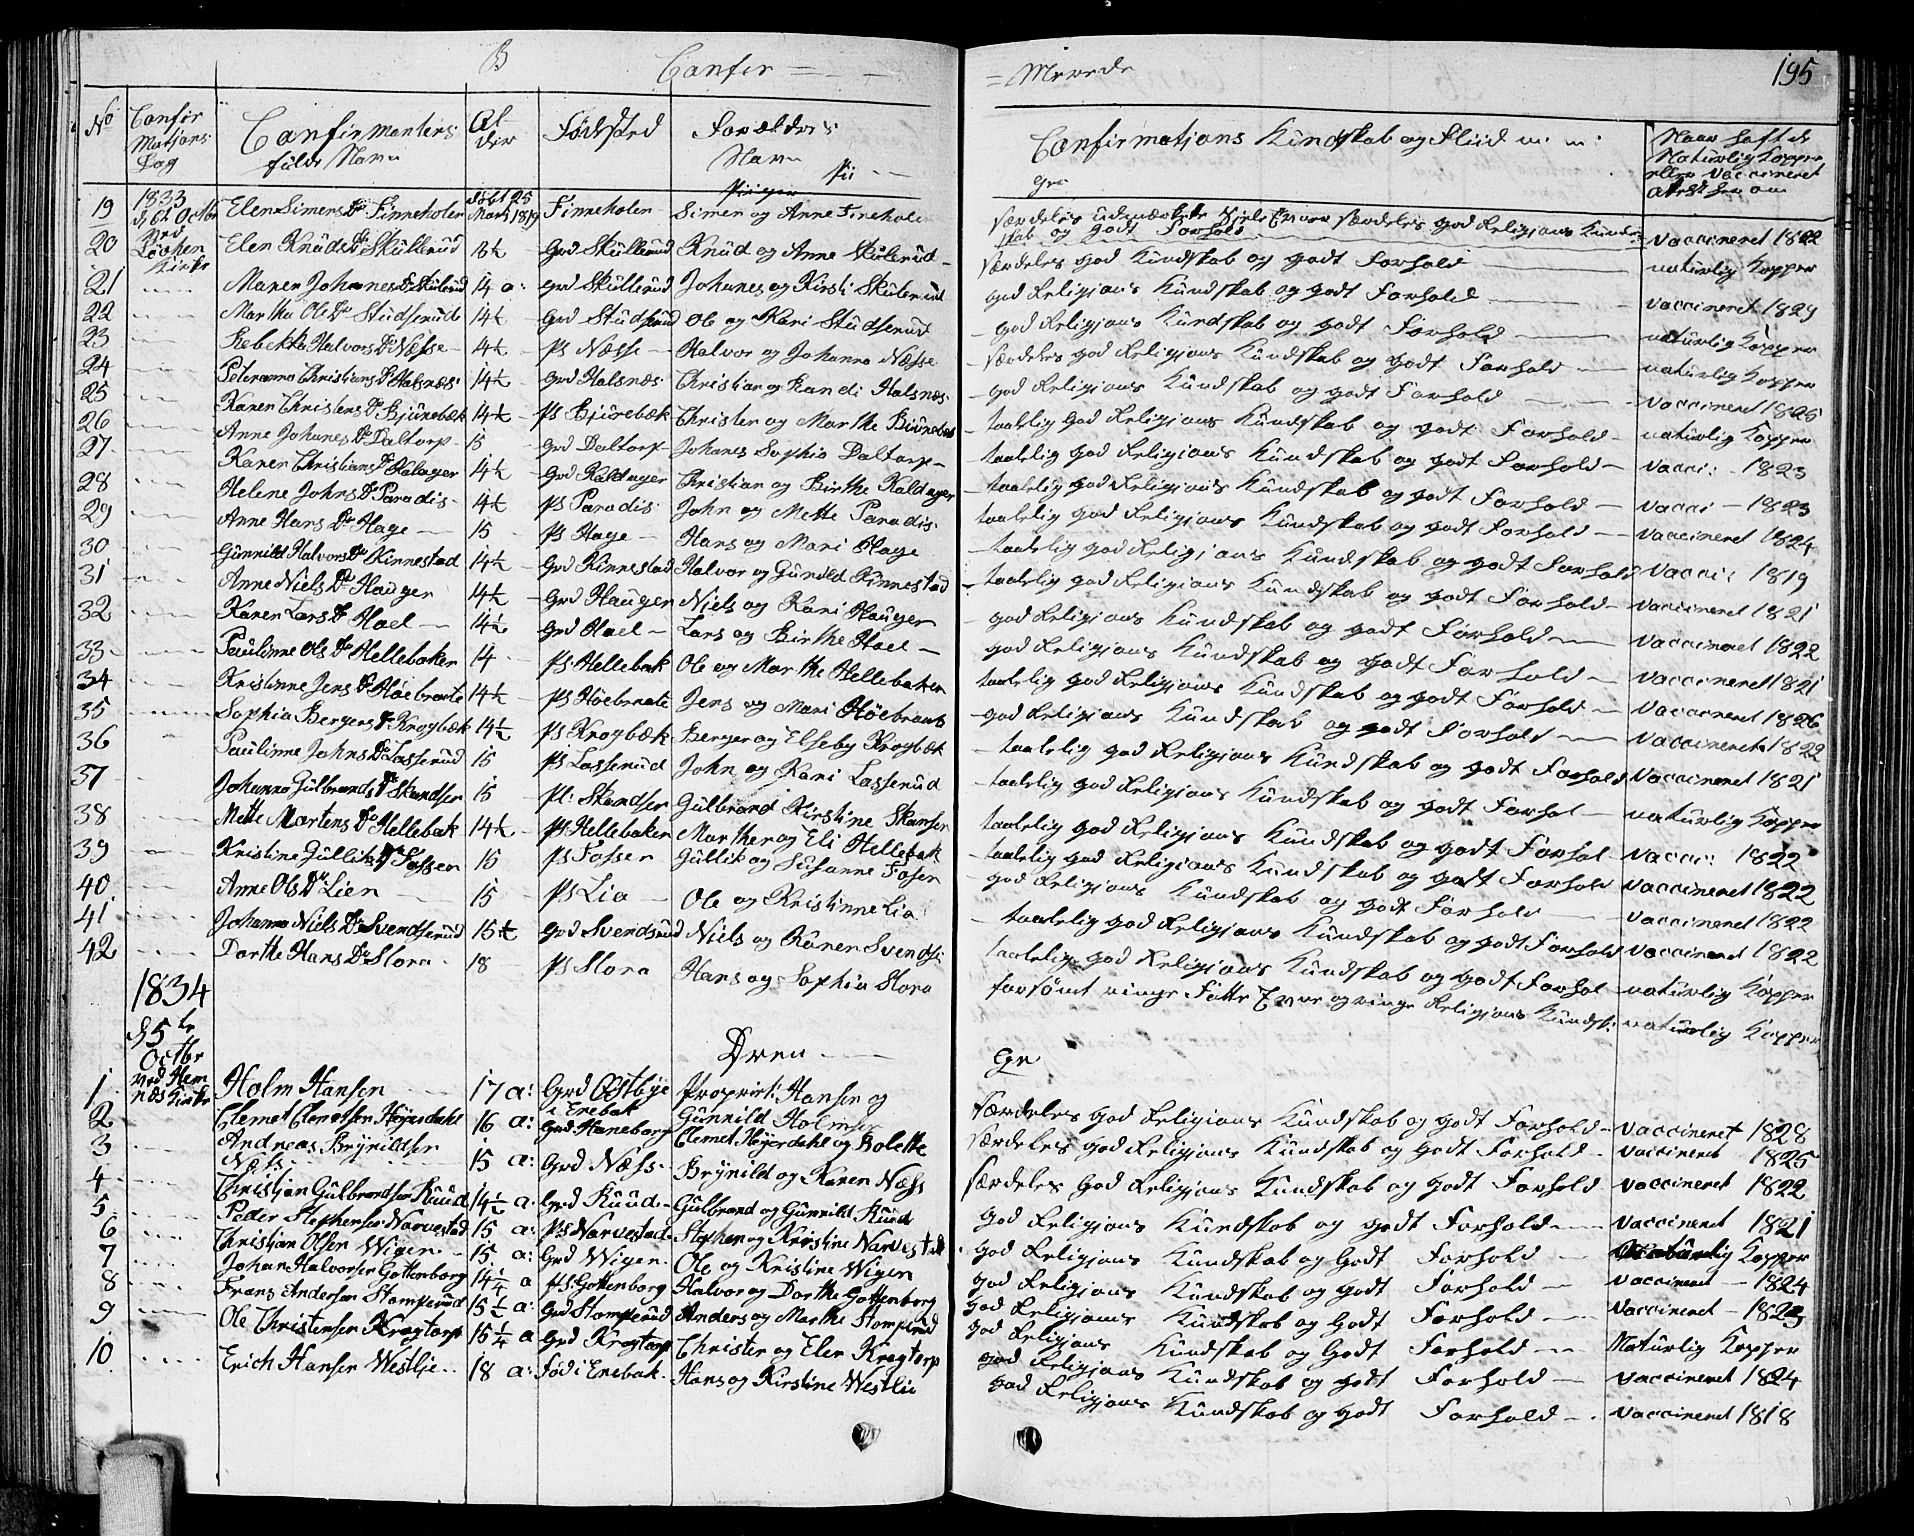 B Confir = - - = Merede 195
No Confir Matjons Dag Confirmentens fulde Navn Al der Fødested Forældres Navn Pii - - Confirmatjons Kundskab og Fliid m: m: Naar hafte Naturlig Kopper eller Vaccineret
19 1833 d 6t Octbr Elen Simens Dr Finneholen født 25 Marti 1819 Finneholen Simen og Anne Fineholen særdeles udmærkete Siele Evner særdeles god Religions Kundskab og godt Forhold vaccineret 1822
20 Ved Løvhen Kirke Elen Knuds Dr Skullerud Grd Skullerud Knud og Anne Skulerud særdeles god Kundskab og godt Forhold naturlig Kopper
21 Maren Johanes Dr Skulerud 14 a: Grd Skullerud Johanes og Kirsti Skulerud god Religions Kundskab og godt Forhold vaccineret 1829
22 Martha Ols Dr Studserud 14½ Grd Studserud Ole og Kari Studserud god Religjons Kundskab og godt Forhold naturlig Kopper
23 Rebekka Halvors Dr Næsse 14½ Ps Næsse Halvor og Johanna Næsse særdeles god Religjons Kundskab og godt Forhold naturlig Kopper
24 Peteranna Christians Dr Halsnæs 14½ Grd Halsnæs Christian og Randi Halsnæs god Religjons Kundskab og godt Forhold vaccineret 1825
25 Karen Christens Dr Bjürebæk 14½ Ps Bjürebæk Christen og Marthe Biürebæk taalelig god Religjons Kundskab og godt Forhold naturlig Kopper
26 Anne Johanes Dr Daltorp 15 Grd Daltorp Johanes Sophia Daltorp taalelig god Religjons Kundskab og godt Forhold vacci: 1823
27 Karen Christians Dr Kalager 14½ Grd Kaldager Christian og Birthe Kaldager taalelig god Religjons Kundskab og godt Forhold vacci 1823
28 Helene Johns Dr Paradis 14½ Ps Paradis John og Mette Paradis taalelig god Religjons Kundskab og godt Forhold vaccineret 1824
29 Anne Hans Dr Hage 15 Ps Hage Hans og Mari Hage taalelig god Religjons Kundskab og godt Forhold vacci: 1819
30 Gunnild Halvors Dr Kinnestad 14½ Grd Kinnestad Halvor og Gunild Kinnestad taalelig god Religjons Kundskab og godt Forhold vaccineret 1821
31 Anne Niels Dr Hauger 14½ Grd Hauger Niels og Kari Hauger god Religjons Kundskab og godt Forhold vaccineret 1822
32 Karen Lars Dr Hoel 14½ Grd Hoel Lars og Birthe Hoel god Religjons Kundskab og godt Forhold vaccineret 1821
33 Paulinne Ols Dr Hellebæken 14 Ps Hellebæk Ole og Marthe Hellebæken taalelig god Religjons Kundskab og godt Forhold vaccineret 1826
34 Kristinne Jens Dr Høebraate 14½ Ps Høebraate Jens og Mari Høebraat god Religjons Kundskab og godt Forhold vaccineret 1822
35 Sophia Bergers Dr Krogbæk 14½ Ps Krogbæk Berger og Elseby Krogbæk taalelig god Religjons Kundskab og godt Forhold vaccineret 1821
36 Paulinne Johns Dr Lasserud 15 Ps Lasserud John og Kari Lasserud taalelig god Religjons Kundskab og godt Forhol naturlig Kopper
37 Johanna Gulbrands Dr Skandser 15 Pl: Skandser Gulbrand Kirstine Skanser taalelig god Religjons Kundskab og godt Forhol vacci: 1822
38 Mette Martens Dr Hellebæk 14½ Ps Hellebæken Marthen og Eli Hellebæk taalelig god Religjons Kundskab og godt Forhold vaccineret 1822
39 Kristine Gulliks Dr Fosser 15 Ps Fosser Gullik og Susanne Foser god Religjons Kundskab og godt Forhold vaccineret 1822
40 Anne Ols Dr Lien 15 Ps Lia Ole og Kristinne Lia taalelig god Religjons Kundskab og godt Forhold vaccineret 1822
41 Johanna Niels Dr Svendserud 15½ Grd Svendsrud Niels og Karen Svends: taalelig god Religjons Kundskab og godt Forhol naturlig Kopper
42 Dorthe Hans Dr Slora 18 Ps Slora Hans og Sophia Slora forsømt ringe Fatte Evne og ringe Religjons Kundsk: naturlig Kopper
1834
d 5te Octbr Dren ge
1 ved Hem næs Kirke Holm Hansen 17 a: Grd Østbye i Enebak Proprieti: Hansen og Gunnild Holmsen særdeles god Religjons Kundskab og godt Forhold vaccineret 1828
2 Clemet Clemetsen Heyerdahl 16 a: Grd: Haneborg Clemet Heyerdahl og Bolette særdeles god Religjons Kundskab og godt Forhold vaccineret 1825
3 Andreas Brynildsen Næss 15 a: Grd Næss Brynild og Karen Næss særdeles god Religjons Kundskab og godt Forhold vaccineret 1822
4 Christjan Gulbrandsen Ruud 14½ a: Grd Ruud Gulbrand og Gunnild Ruud god Religjons Kundskab og godt Forhold vaccineret 1821
5 Peder Stephensen Narvestad 15 a: Ps Narvestad Stephen og Kristine Narvestad god Religjons Kundskab og godt Forhold Naturlig Kopper
6 Christian Olsen Wigen 15 a: Grd Wigen Ole og Kristine Wigen god Religjons Kundskab og godt Forhold vaccineret 1824
7 Johan Halvorsen Gottenborg 14½ a Ps: Gottenborg Halvor og Dorthe Gottenborg god Religjons Kundskab og godt Forhold vaccineret 1823
8 Frans Andersen Stomperud 15½ a: Grd Stomperud Anders og Marthe Stomperud god Religjons Kundskab og Godt Forhold Naturlig Kopper
9 Ole Christensen Krogtorp 15¼ a Grd Krogtorp Christen og Elen Krogtorp god Religjons Kundskab og godt Forhold vaccineret 1824
10 Erich Hansen Westlie 18 a: Fød i Enebak Hans og Kirstine Westlie god Religjons Kundskab og godt Forhold vaccineret 1818